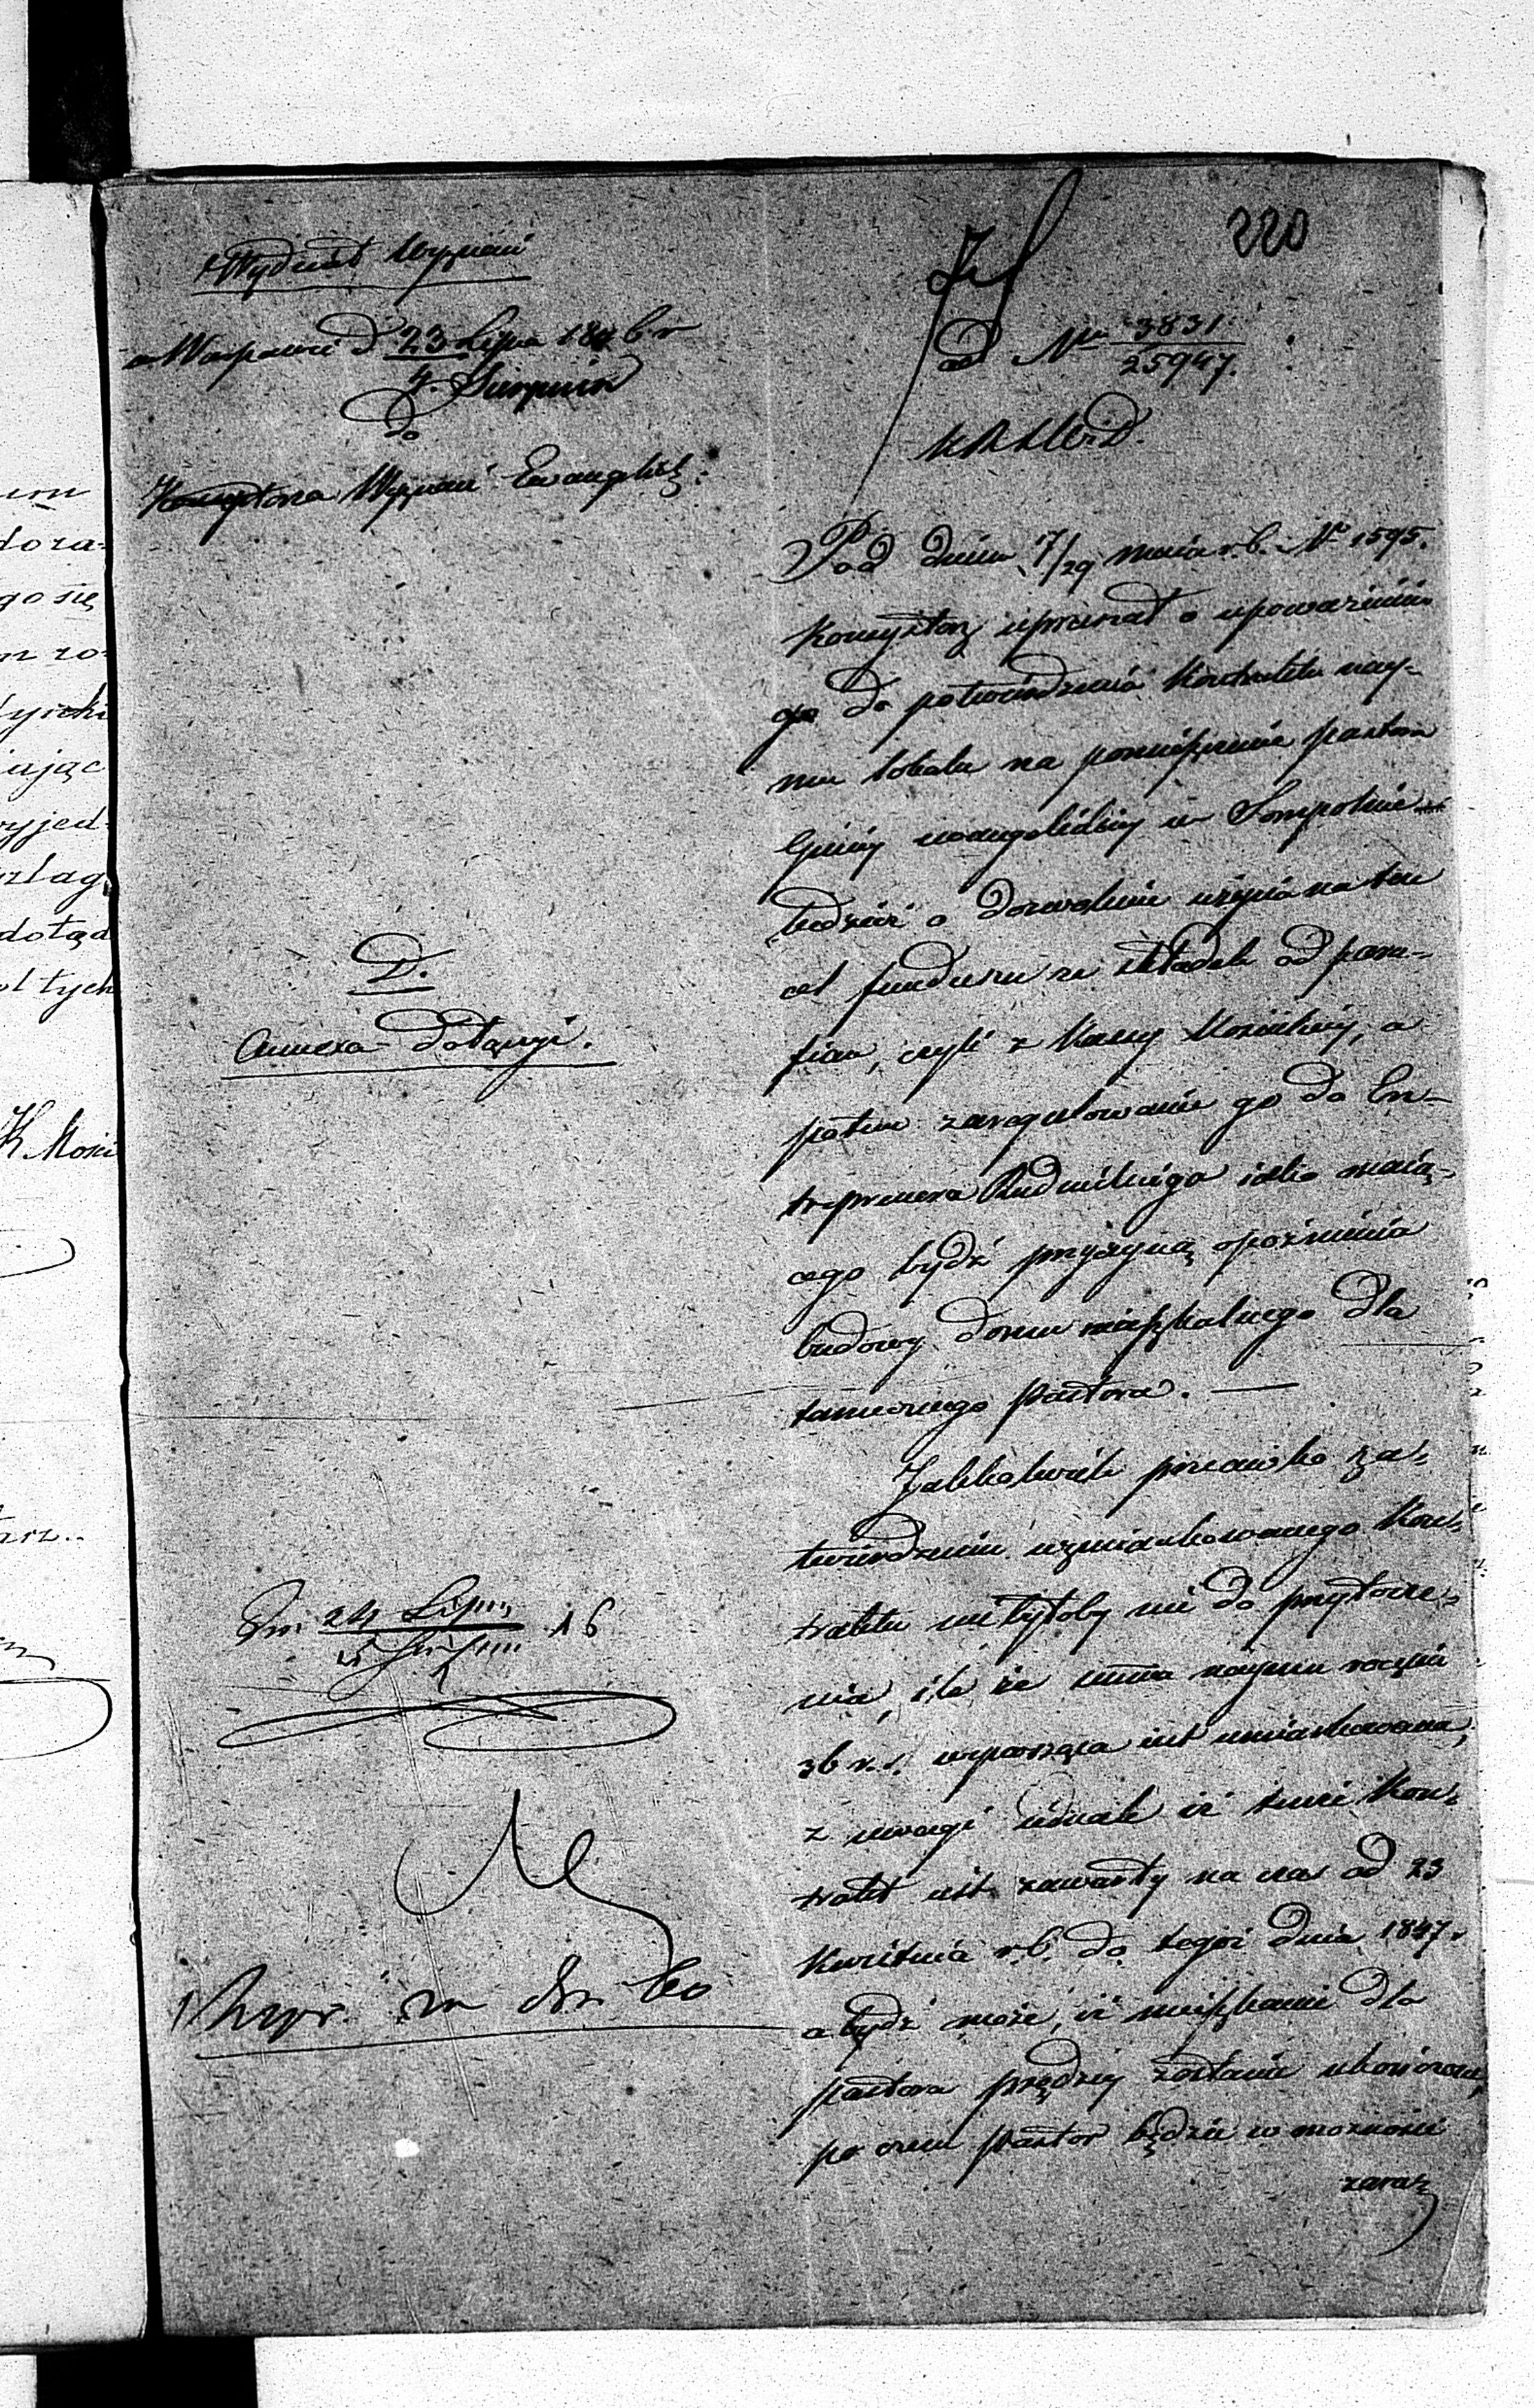 220
Wydział Wyznań
w Warszawie d. 23 Lipca 1846 r
4. Sierpnia
do
Konsystorza Wyznań Ewangelick:
ad Nro 3831.
25947.
K R S W i D.
Pod dniem 17/29 maia r.b. Nr 1595.
Konsystorz upraszał o upoważnienie
go do potwierdzenia Kontraktu nay-
mu lokalu na pomieszczenie pastora
Gminy ewangelickiey w Sompolnie
tudzież o dozwolenie użycia na ten
cel funduszu ze składek od para-
fian, czyli z Kassy Kościelney, a
potem zaregulowanie go do En-
treprenera Rudnickiego iako maią-
cego bydź przyczyną opóźnienia
budowy domu mieszkalnego dla
tamecznego Pastora. —
D.
Annexa dołączyć.
Jakkolwiek przeciwko za-
twierdzeniu wzmiankowanego Kon-
traktu nie byłoby nic do przytocze-
nia, ile że summa naymu rocznie
36 r.s. wynosząca iest umiarkowana,
z uwagi iednak iż tenże Kon-
trakt iest zawarty na czas od 23
Kwietnia r.b. do tegoż dnia 1847 r
a bydź może, iż mieszkanie dla
pastora prędzey zostanie ukończone,
po czem Pastor będzie w możności
zaraz
24 Lipca
5 Sierpnia 46